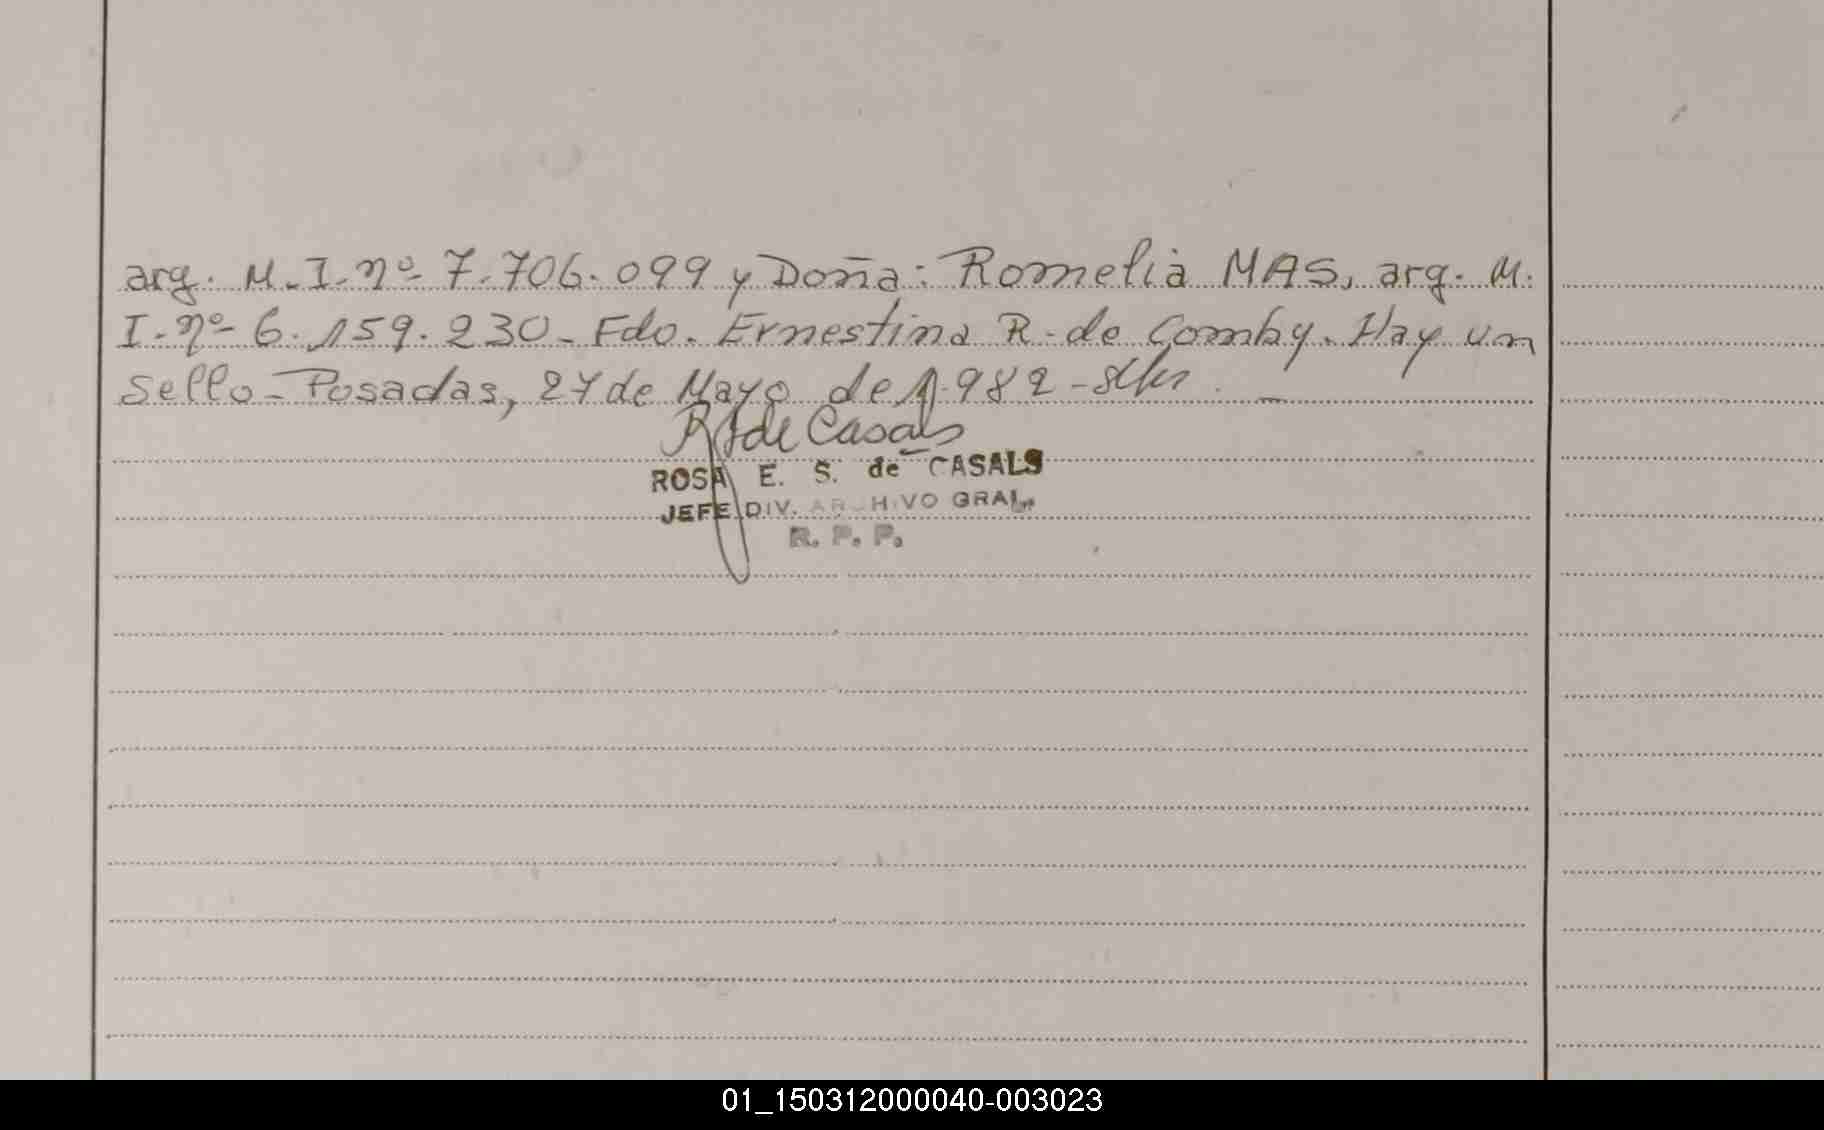 arg. M.I. nº 7.706.099 y Doña: Romelia MAS, arg. M.
I. nº 6.159.230- Fdo. Ernestina R. de Comby. Hay un
Sello- Posadas, 27 de Mayo de 1.982-
de Casals
ROSA E. S. de CASALS
JEFE DIV. ARCHIVO GRAL.
R. P. P.
01_150312000040-003023